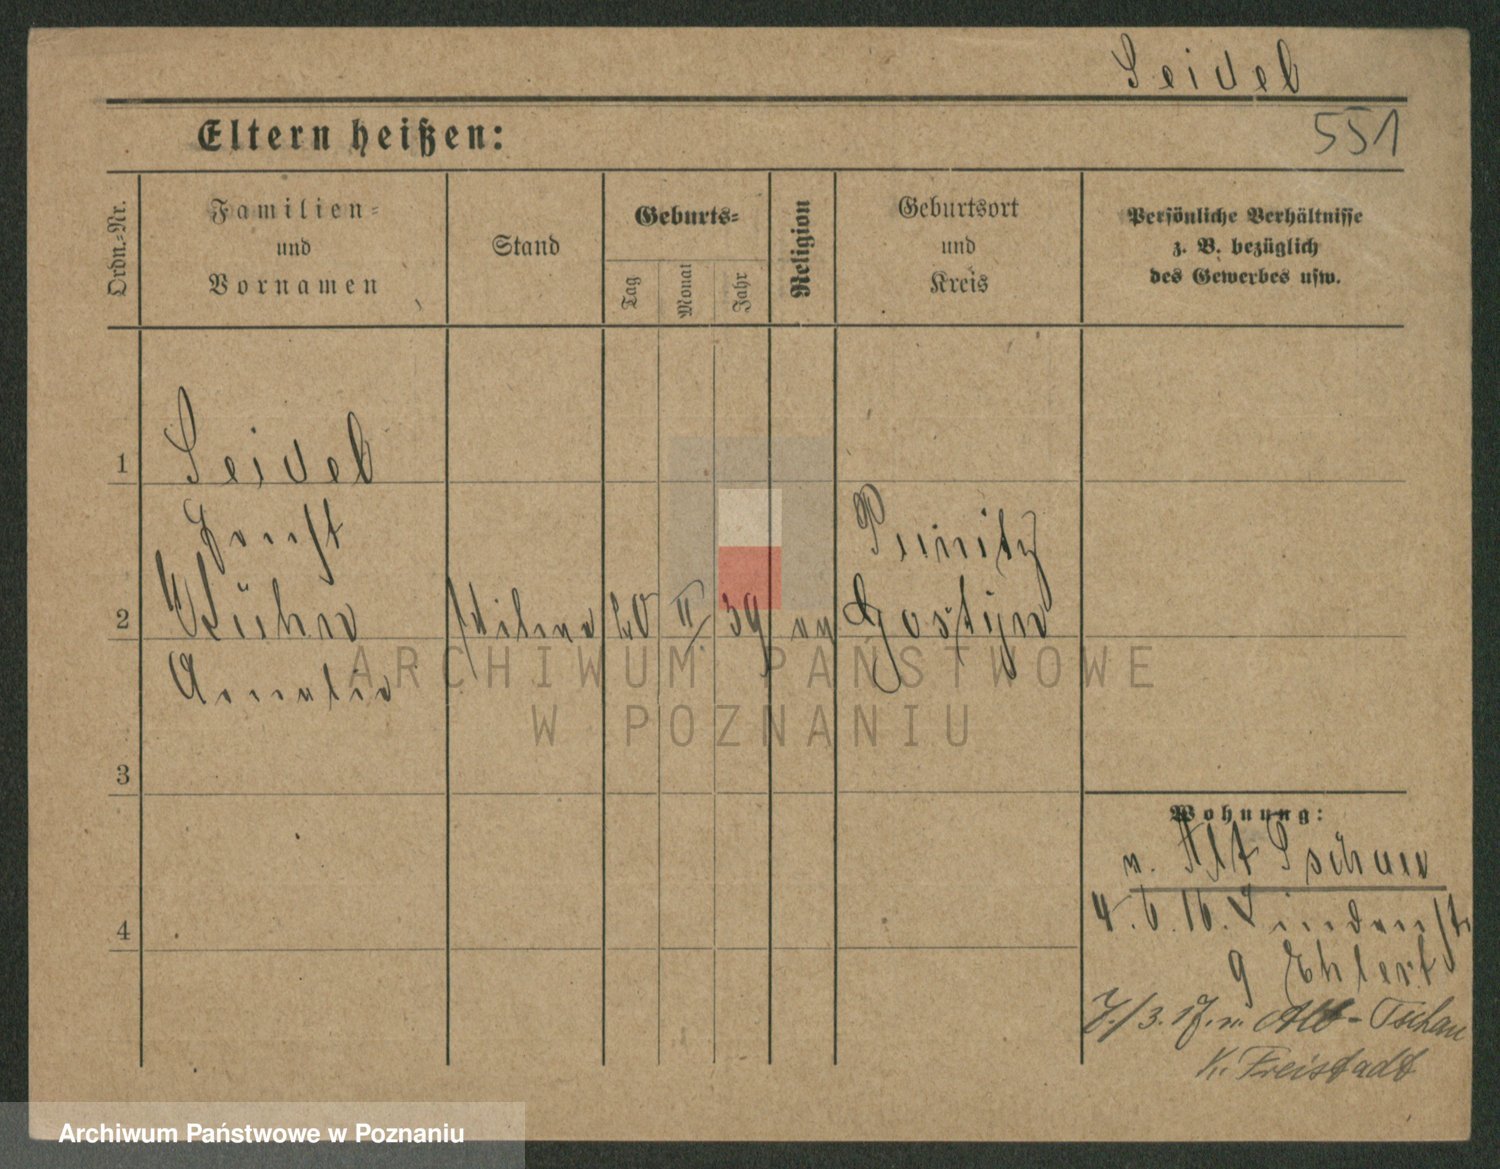 Seidel
Eltern heißen:
551
Ordn.=Nr.
Familien=
und
Vornamen
Stand
Geburts=
Tag
Monat
Jahr
Religion
Geburtsort
und
Kreis
Persönliche Verhältnisse
z. B. bezüglich
des Gewerbes usw.
1
Seidel
Punitz
2
Kühn
20 II 39
Gostyn
Amalie
ARCHIWUM PAŃSTWOWE
W POZNANIU
3
Wohnung:
n. Alt Tschau
4
4. 6. 16. Lindenstr
9 Ehlert
7./3. 17. n. Alt-Tschau
K. Freistadt
Archiwum Państwowe w Poznaniu